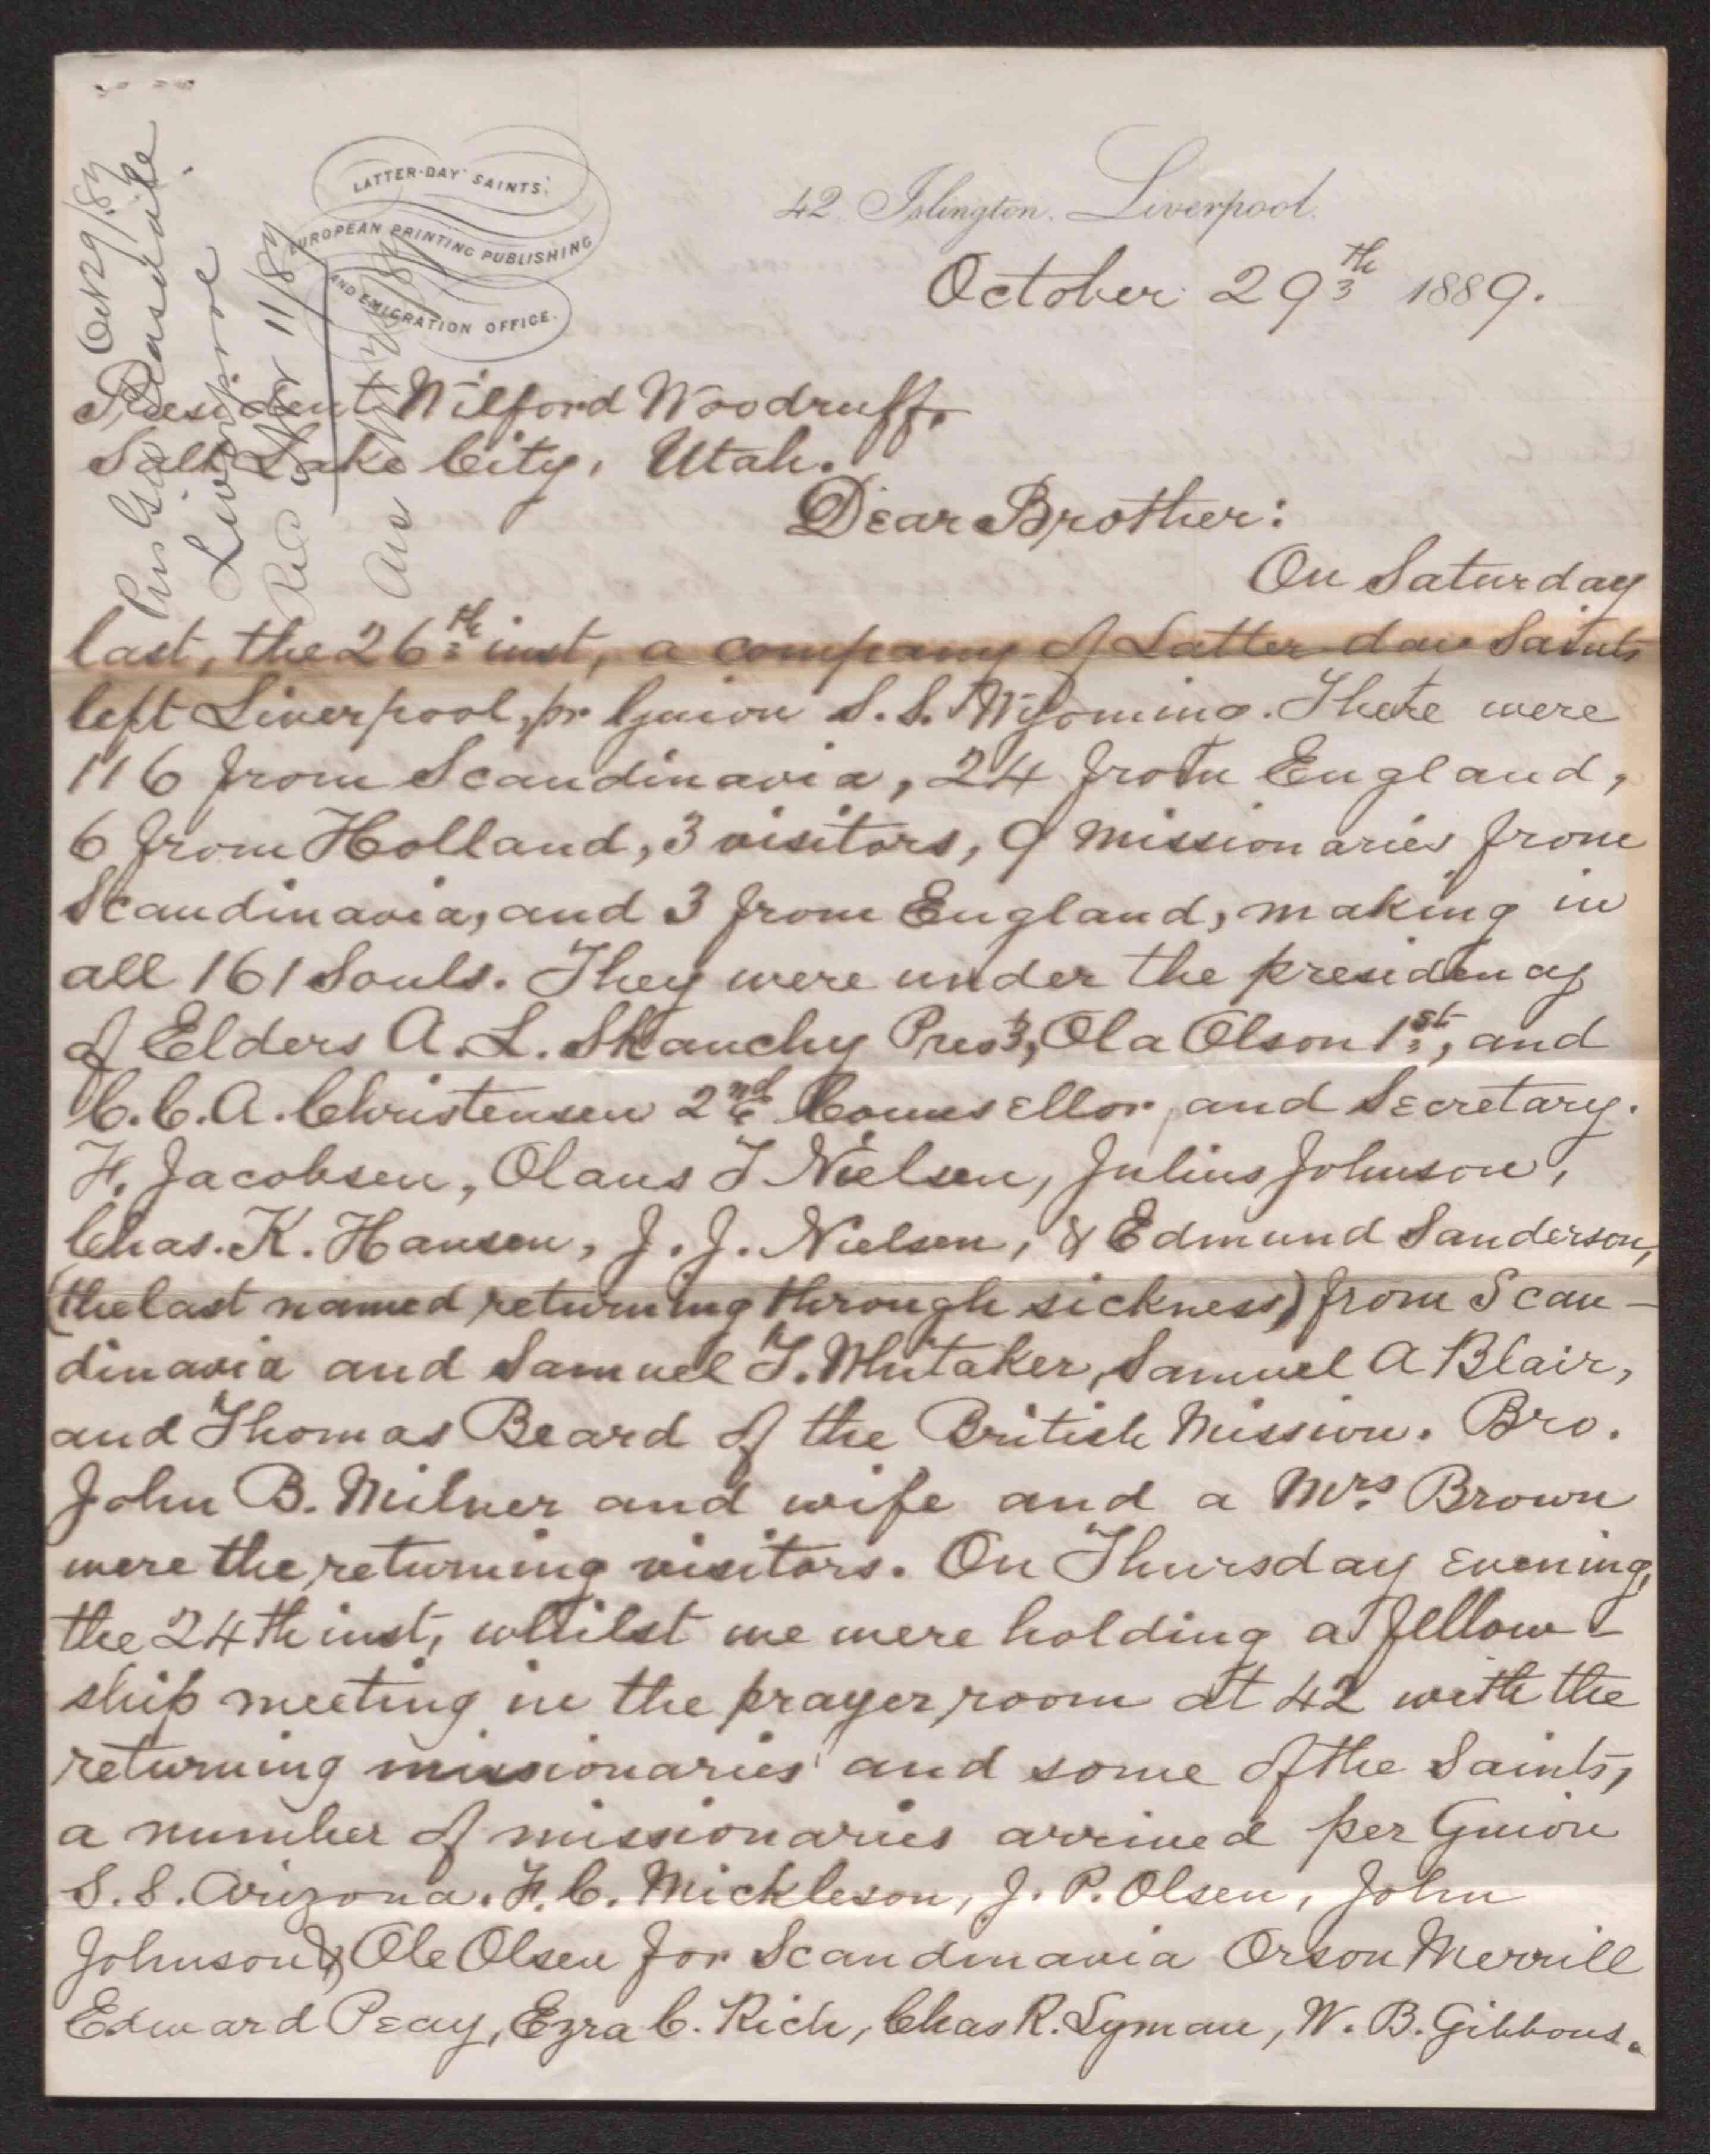 Oct 29/89
Pres Geo Teasdale
Liverpool
Rec Nov 11/89
Ans Nov /89
LATTER-DAY SAINTS'
EUROPEAN PRINTING PUBLISHING
AND EMIGRATION OFFICE.
42. Islington. Liverpool.
October 29th 1889.
President Wilford Woodruff.
Salt Lake City, Utah.
Dear Brother:
On Saturday
last, the 26th inst, a company of Latter-day Saints
left Liverpool, pr Guion S.S. Wyoming. There were
116 from Scandinavia, 24 from England,
6 from Holland, 3 visitors, 9 missionaries from
Scandinavia, and 3 from England, making in
all 161 Souls. They were under the presidency
of Elders A. L. Skanchy Prest, Ola Olson 1st, and
C. C. A. Christensen 2nd Counsellor, and Secretary.
H. Jacobsen, Olaus T Nielsen, Julius Johnson,
Chas. K. Hansen, J. J. Nielsen, & Edmund Sanderson,
(the last named returning through sickness) from Scan-
dinavia and Samuel T. Whitaker, Samuel A Blair,
and Thomas Beard of the British Mission. Bro.
John B. Milner and wife and a Mrs Brown
were the returning visitors. On Thursday evening,
the 24th inst, whilst we were holding a fellow-
ship meeting in the prayer room at 42 with the
returning missionaries and some of the Saints,
a number of missionaries arrived per Guion
S.S. Arizona. H. C. Mickleson, J. P. Olsen, John
Johnson & Ole Olsen for Scandinavia Orson Merrill
Edward Peay, Ezra C. Rich, Chas R. Lyman, W. B. Gibbons.